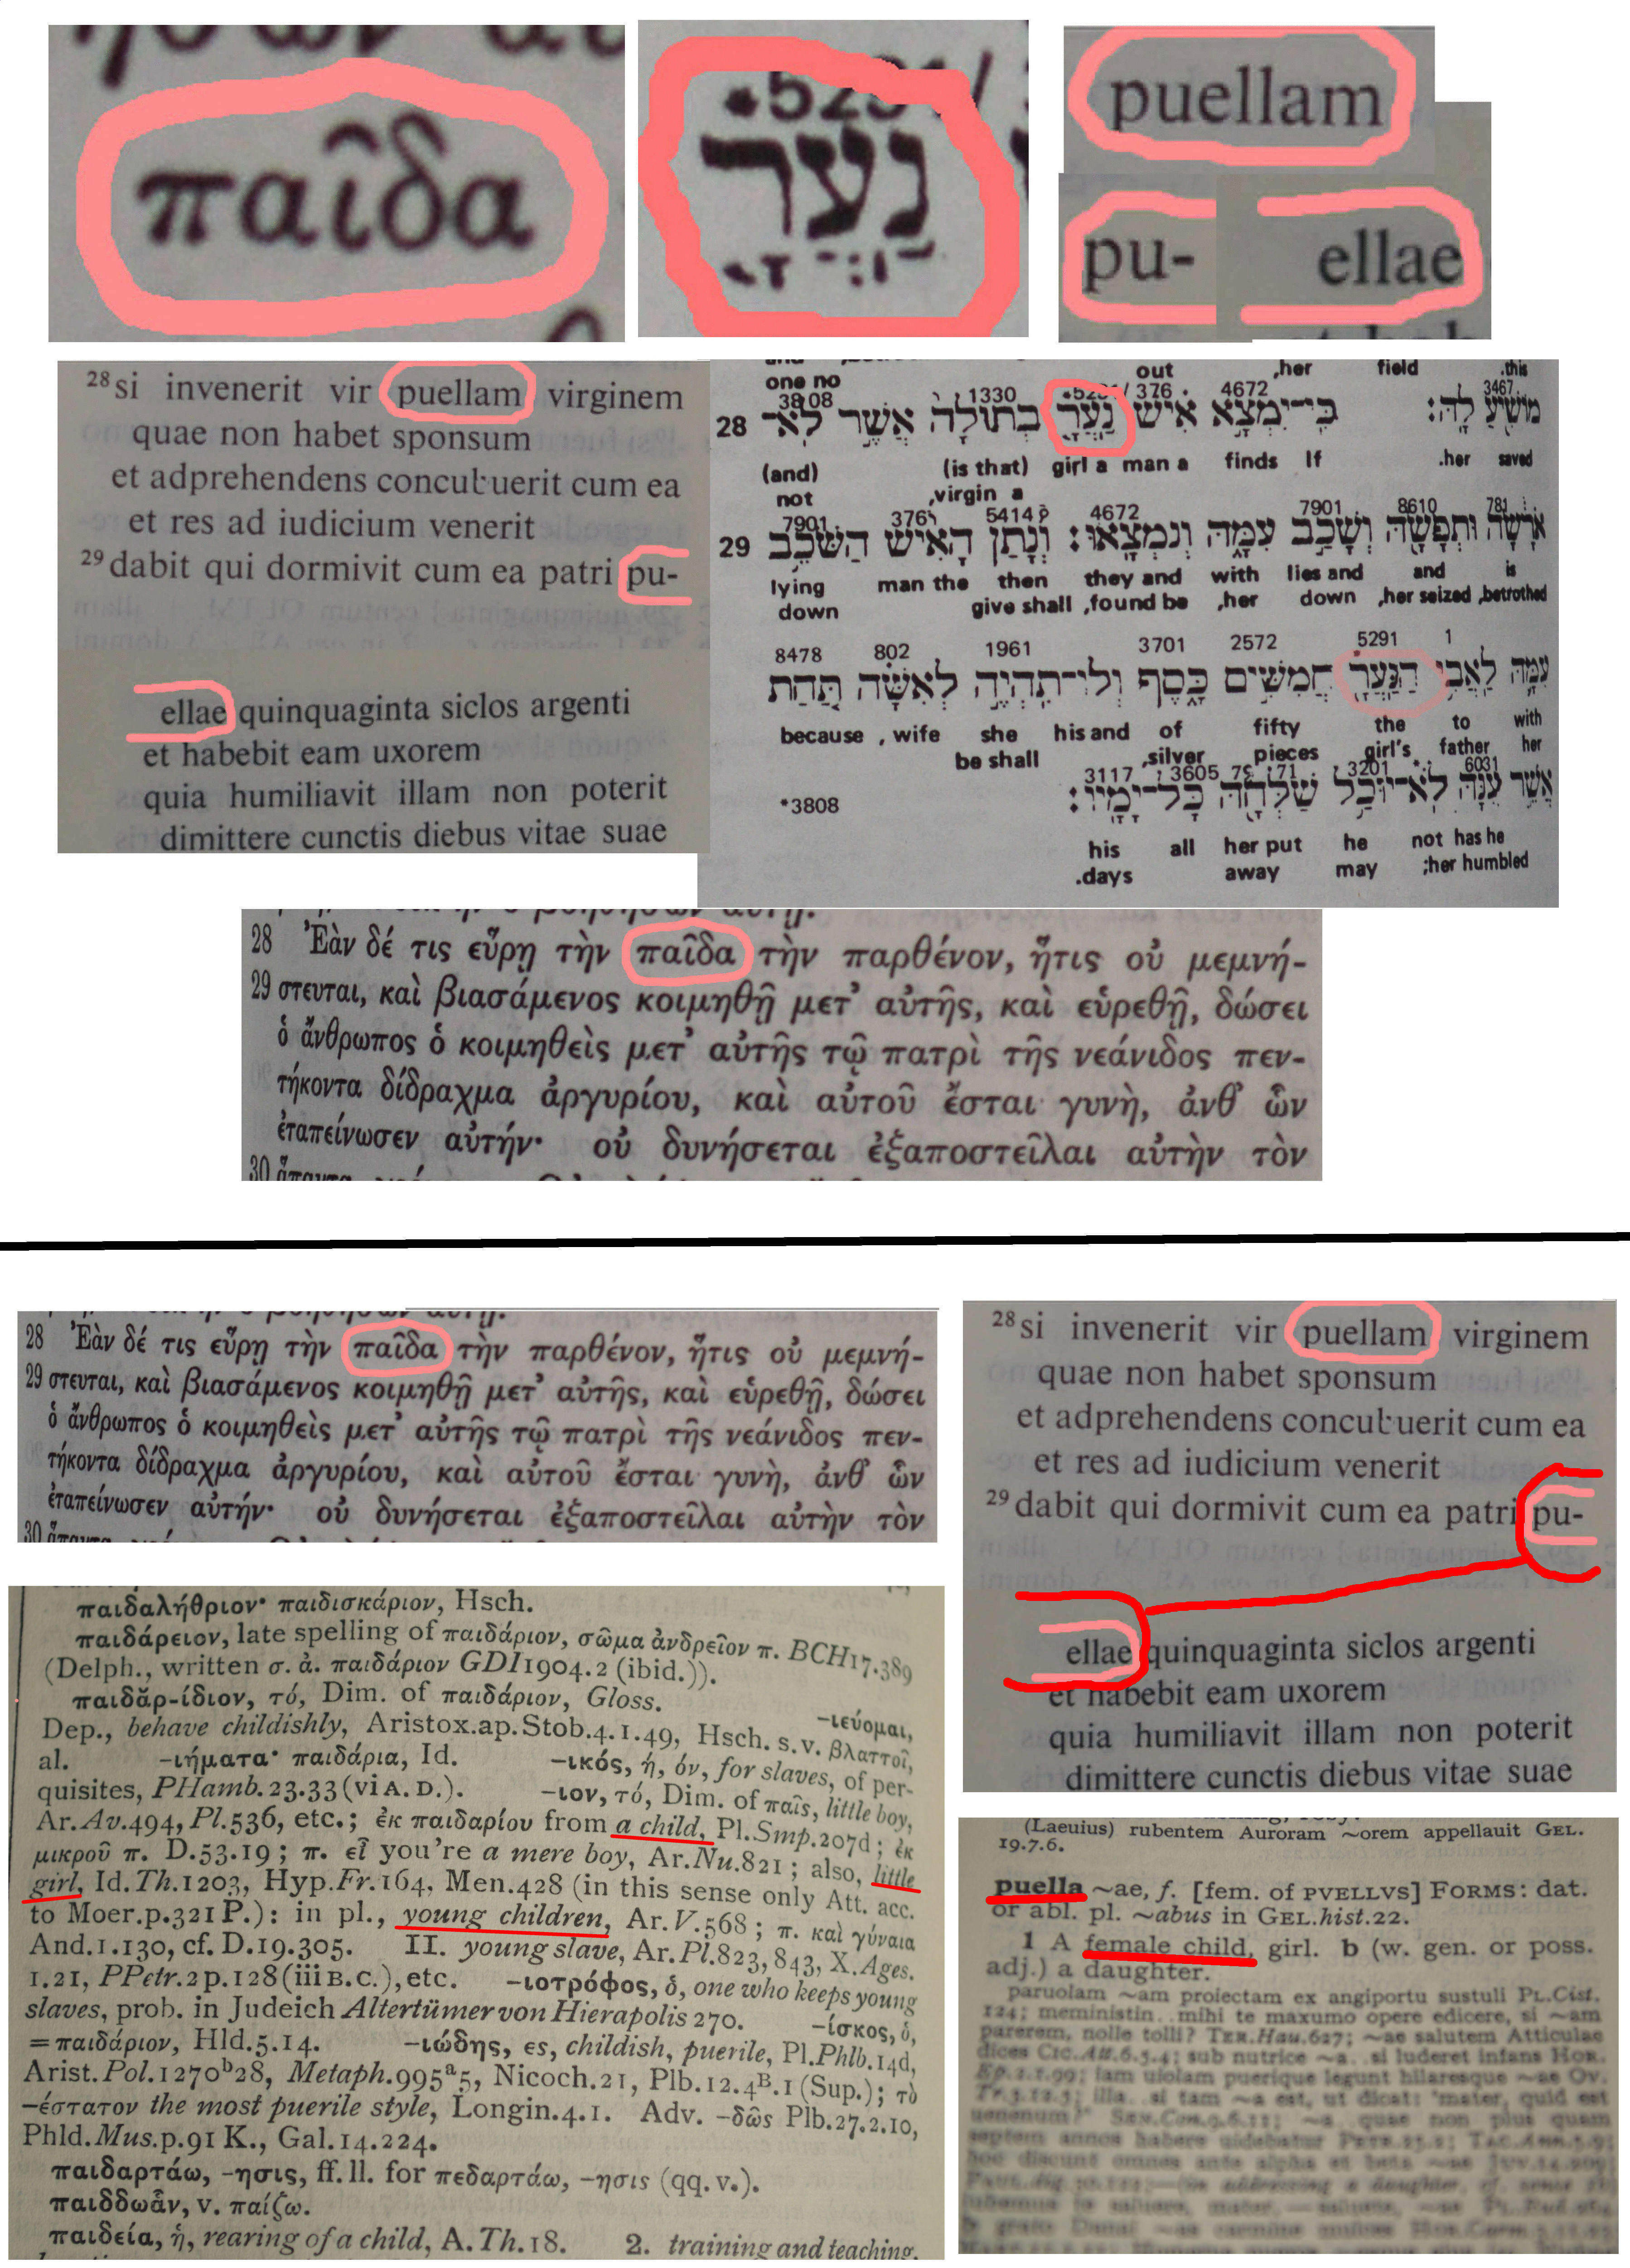 παῖδα
נַעֲרָ
puellam
pu- ellae
28 si invenerit vir puellam virginem
quae non habet sponsum
et adprehendens concubuerit cum ea
et res ad iudicium venerit
29 dabit qui dormivit cum ea patri pu-
ellae quinquaginta siclos argenti
et habebit eam uxorem
quia humiliavit illam non poterit
dimittere cunctis diebus vitae suae
out ,her field .this
one no
3808 1330 376 4672 3467
28 מוֹשִׁיעַ לָהּ׃ כִּי־יִמְצָא אִישׁ נַעֲרָ בְתוּלָה אֲשֶׁר לֹא־
(and) (is that) girl a man a finds If .her saved
not ,virgin a
7901 376 5414 4672 7901 8610 781
29 אֹרָשָׂה וּתְפָשָׂהּ וְשָׁכַב עִמָּהּ וְנִמְצָאוּ׃ וְנָתַן הָאִישׁ הַשֹּׁכֵב
lying man the then they and with lies and and is
down give shall ,found be ,her down ,her seized ,betrothed
8478 802 1961 3701 2572 5291 1
עִמָּהּ לַאֲבִי הַנַּעֲרָ חֲמִשִּׁים כָּסֶף וְלוֹ־תִהְיֶה לְאִשָּׁה תַּחַת
because , wife she his and of fifty the to with
be shall ,silver pieces girl's father her
3117 3605 7971 3201 6031
אֲשֶׁר עִנָּהּ לֹא־יוּכַל שַׁלְּחָהּ כָּל־יָמָיו׃
*3808
his all her put he not has he
.days away may ;her humbled
28 Ἐὰν δέ τις εὕρῃ τὴν παῖδα τὴν παρθένον, ἥτις οὐ μεμνή-
29 στευται, καὶ βιασάμενος κοιμηθῇ μετ’ αὐτῆς, καὶ εὑρεθῇ, δώσει
ὁ ἄνθρωπος ὁ κοιμηθεὶς μετ’ αὐτῆς τῷ πατρὶ τῆς νεάνιδος πεν-
τήκοντα δίδραχμα ἀργυρίου, καὶ αὐτοῦ ἔσται γυνὴ, ἀνθ’ ὧν
ἐταπείνωσεν αὐτήν· οὐ δυνήσεται ἐξαποστεῖλαι αὐτὴν τὸν
30
28 Ἐὰν δέ τις εὕρῃ τὴν παῖδα τὴν παρθένον, ἥτις οὐ μεμνή-
29 στευται, καὶ βιασάμενος κοιμηθῇ μετ’ αὐτῆς, καὶ εὑρεθῇ, δώσει
ὁ ἄνθρωπος ὁ κοιμηθεὶς μετ’ αὐτῆς τῷ πατρὶ τῆς νεάνιδος πεν-
τήκοντα δίδραχμα ἀργυρίου, καὶ αὐτοῦ ἔσται γυνὴ, ἀνθ’ ὧν
ἐταπείνωσεν αὐτήν· οὐ δυνήσεται ἐξαποστεῖλαι αὐτὴν τὸν
30
παιδαλήθριον· παιδισκάριον, Hsch.
παιδάρειον, late spelling of παιδάριον, σῶμα ἀνδρεῖον π. BCH17.389
(Delph., written σ. ἀ. παιδάριον GDI1904.2 (ibid.)).
παιδᾰρ-ίδιον, τό, Dim. of παιδάριον, Gloss. -ιεύομαι,
Dep., behave childishly, Aristox.ap.Stob.4.1.49, Hsch. s.v. βλαττοῖ,
al. -ιήματα· παιδάρια, Id. -ικός, ή, όν, for slaves, of per-
quisites, PHamb.23.33 (vi A. D.). -ιον, τό, Dim. of παῖς, little boy,
Ar.Av.494, Pl.536, etc.; ἐκ παιδαρίου from a child, Pl.Smp.207d; ἐκ
μικροῦ π. D.53.19; π. εἶ you're a mere boy, Ar.Nu.821; also, little
girl, Id.Th.1203, Hyp.Fr.164, Men.428 (in this sense only Att. acc.
to Moer.p.321 P.): in pl., young children, Ar.V.568; π. καὶ γύναια
And.1.130, cf. D.19.305. II. young slave, Ar.Pl.823, 843, X.Ages.
1.21, PPetr.2p.128 (iii B.C.), etc. -ιοτρόφος, ὁ, one who keeps young
slaves, prob. in Judeich Altertümer von Hierapolis 270. -ίσκος, ὁ,
= παιδάριον, Hld.5.14. -ιώδης, ες, childish, puerile, Pl.Phlb.14d,
Arist.Pol.1270ᵇ28, Metaph.995ᵃ5, Nicoch.21, Plb.12.4ᴮ.1 (Sup.); τὸ
-έστατον the most puerile style, Longin.4.1. Adv. -δῶς Plb.27.2.10,
Phld.Mus.p.91 K., Gal.14.224.
παιδαρτάω, -ησις, ff. ll. for πεδαρτάω, -ησις (qq. v.).
παιδδωἇν, v. παίζω.
παιδεία, ἡ, rearing of a child, A.Th.18. 2. training and teaching,
28 si invenerit vir puellam virginem
quae non habet sponsum
et adprehendens concubuerit cum ea
et res ad iudicium venerit
29 dabit qui dormivit cum ea patri pu-
ellae quinquaginta siclos argenti
et habebit eam uxorem
quia humiliavit illam non poterit
dimittere cunctis diebus vitae suae
(Laeuius) rubentem Auroram ~orem appellauit GEL.
19.7.6.
puella ~ae, f. [fem. of PVELLVS] FORMS: dat.
or abl. pl. ~abus in GEL.hist.22.
1 A female child, girl. b (w. gen. or poss.
adj.) a daughter.
paruolam ~am proiectam ex angiportu sustuli PL.Cist.
124; meministin.. mihi te maxumo opere edicere, si ~am
parerem, nolle tolli? TER.Hau.627; ~ae salutem Atticulae
dices CIC.Att.6.5.4; sub nutrice ~a.. si luderet infans HOR.